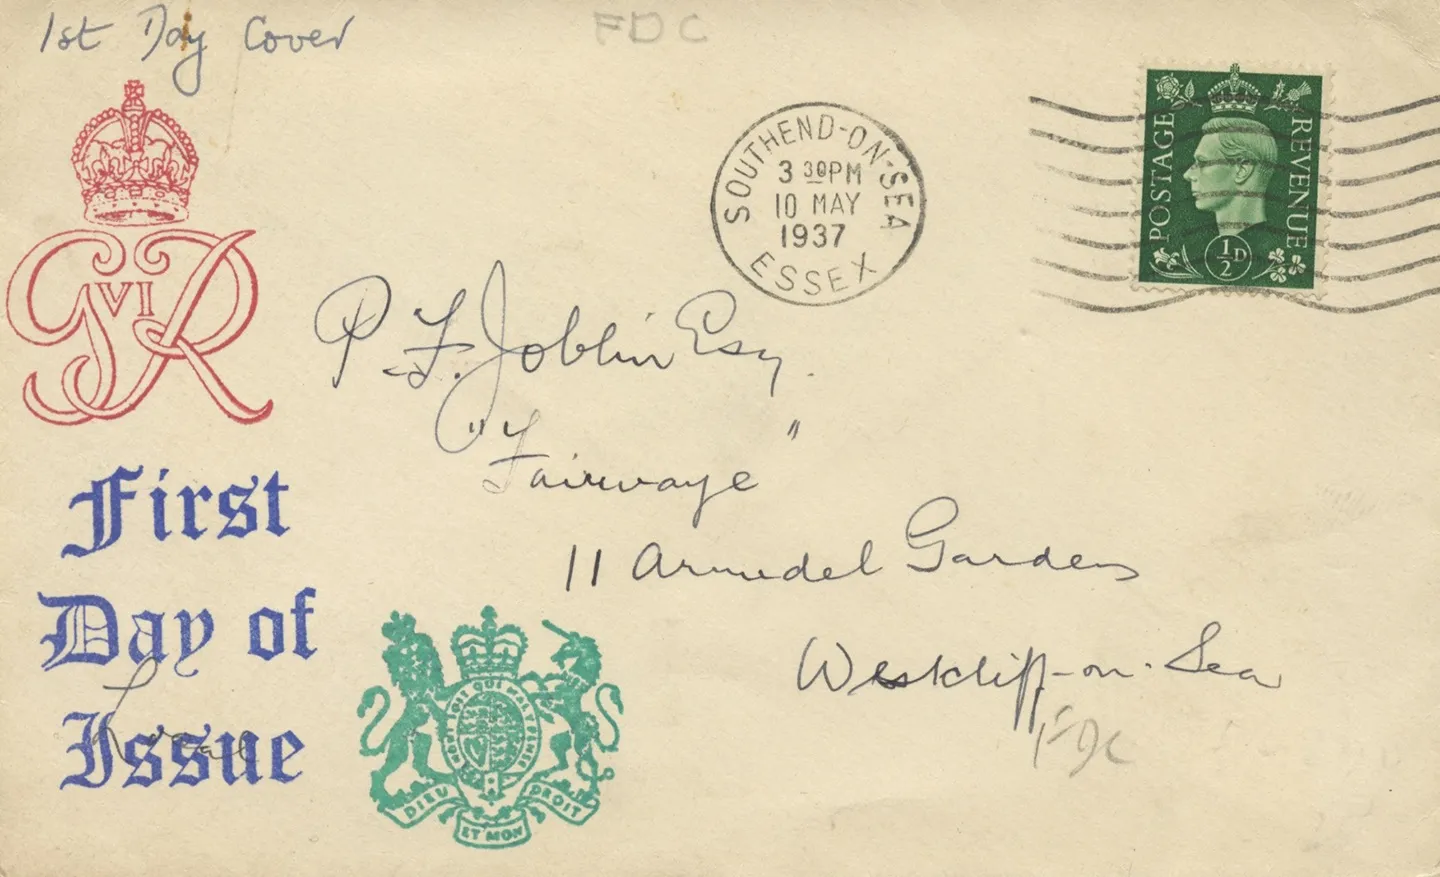 1st Day Cover
FDC
SOUTHEND-ON-SEA
3 30PM
10 MAY
1937
ESSEX
POSTAGE
REVENUE
1/2D
GVIR
P. F. Joblin Esq.
"Fairwaye"
11 Arundel Gardens
Westcliff-on-Sea
FDC
First
Day of
Issue
Local
HONI SOIT QUI MAL Y PENSE
DIEU
ET MON
DROIT